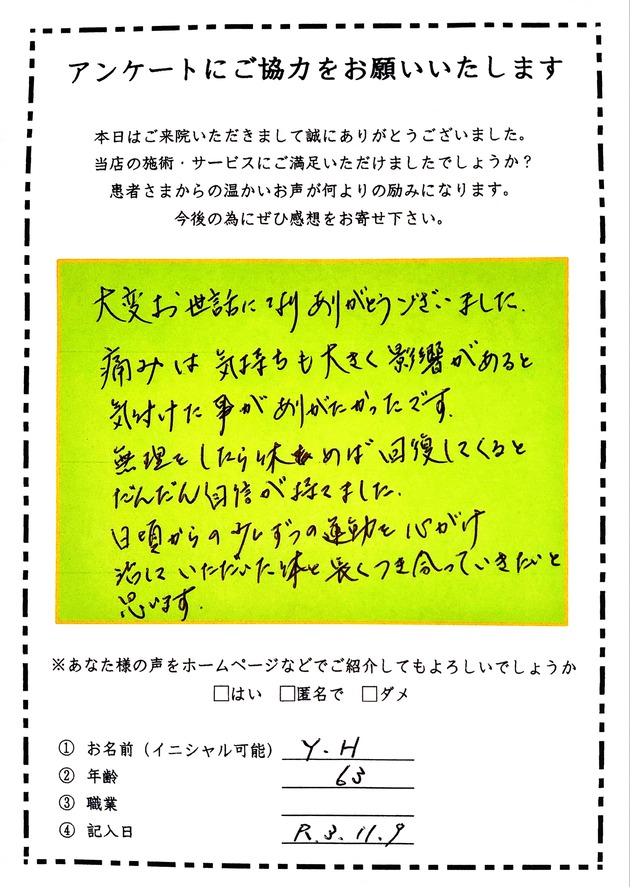 アンケートにご協力をお願いいたします
本日はご来院いただきまして誠にありがとうございました。
当店の施術・サービスにご満足いただけましたでしょうか？
患者さまからの温かいお声が何よりの励みになります。
今後の為にぜひ感想をお寄せ下さい。
大変お世話になり ありがとうございました.
痛みは 気持ちも大きく 影響があると
気付けた事が ありがたかったです.
無理をしたら 休めば 回復してくると
だんだん自信が持てました.
日頃からの少しずつの運動を 心がけ
治して いただいた体と 長くつき合っていきたいと
思います.
※あなた様の声をホームページなどでご紹介してもよろしいでしょうか
□はい □匿名で □ダメ
① お名前（イニシャル可能） Y.H
② 年齢 63
③ 職業
④ 記入日 R.3.11.9